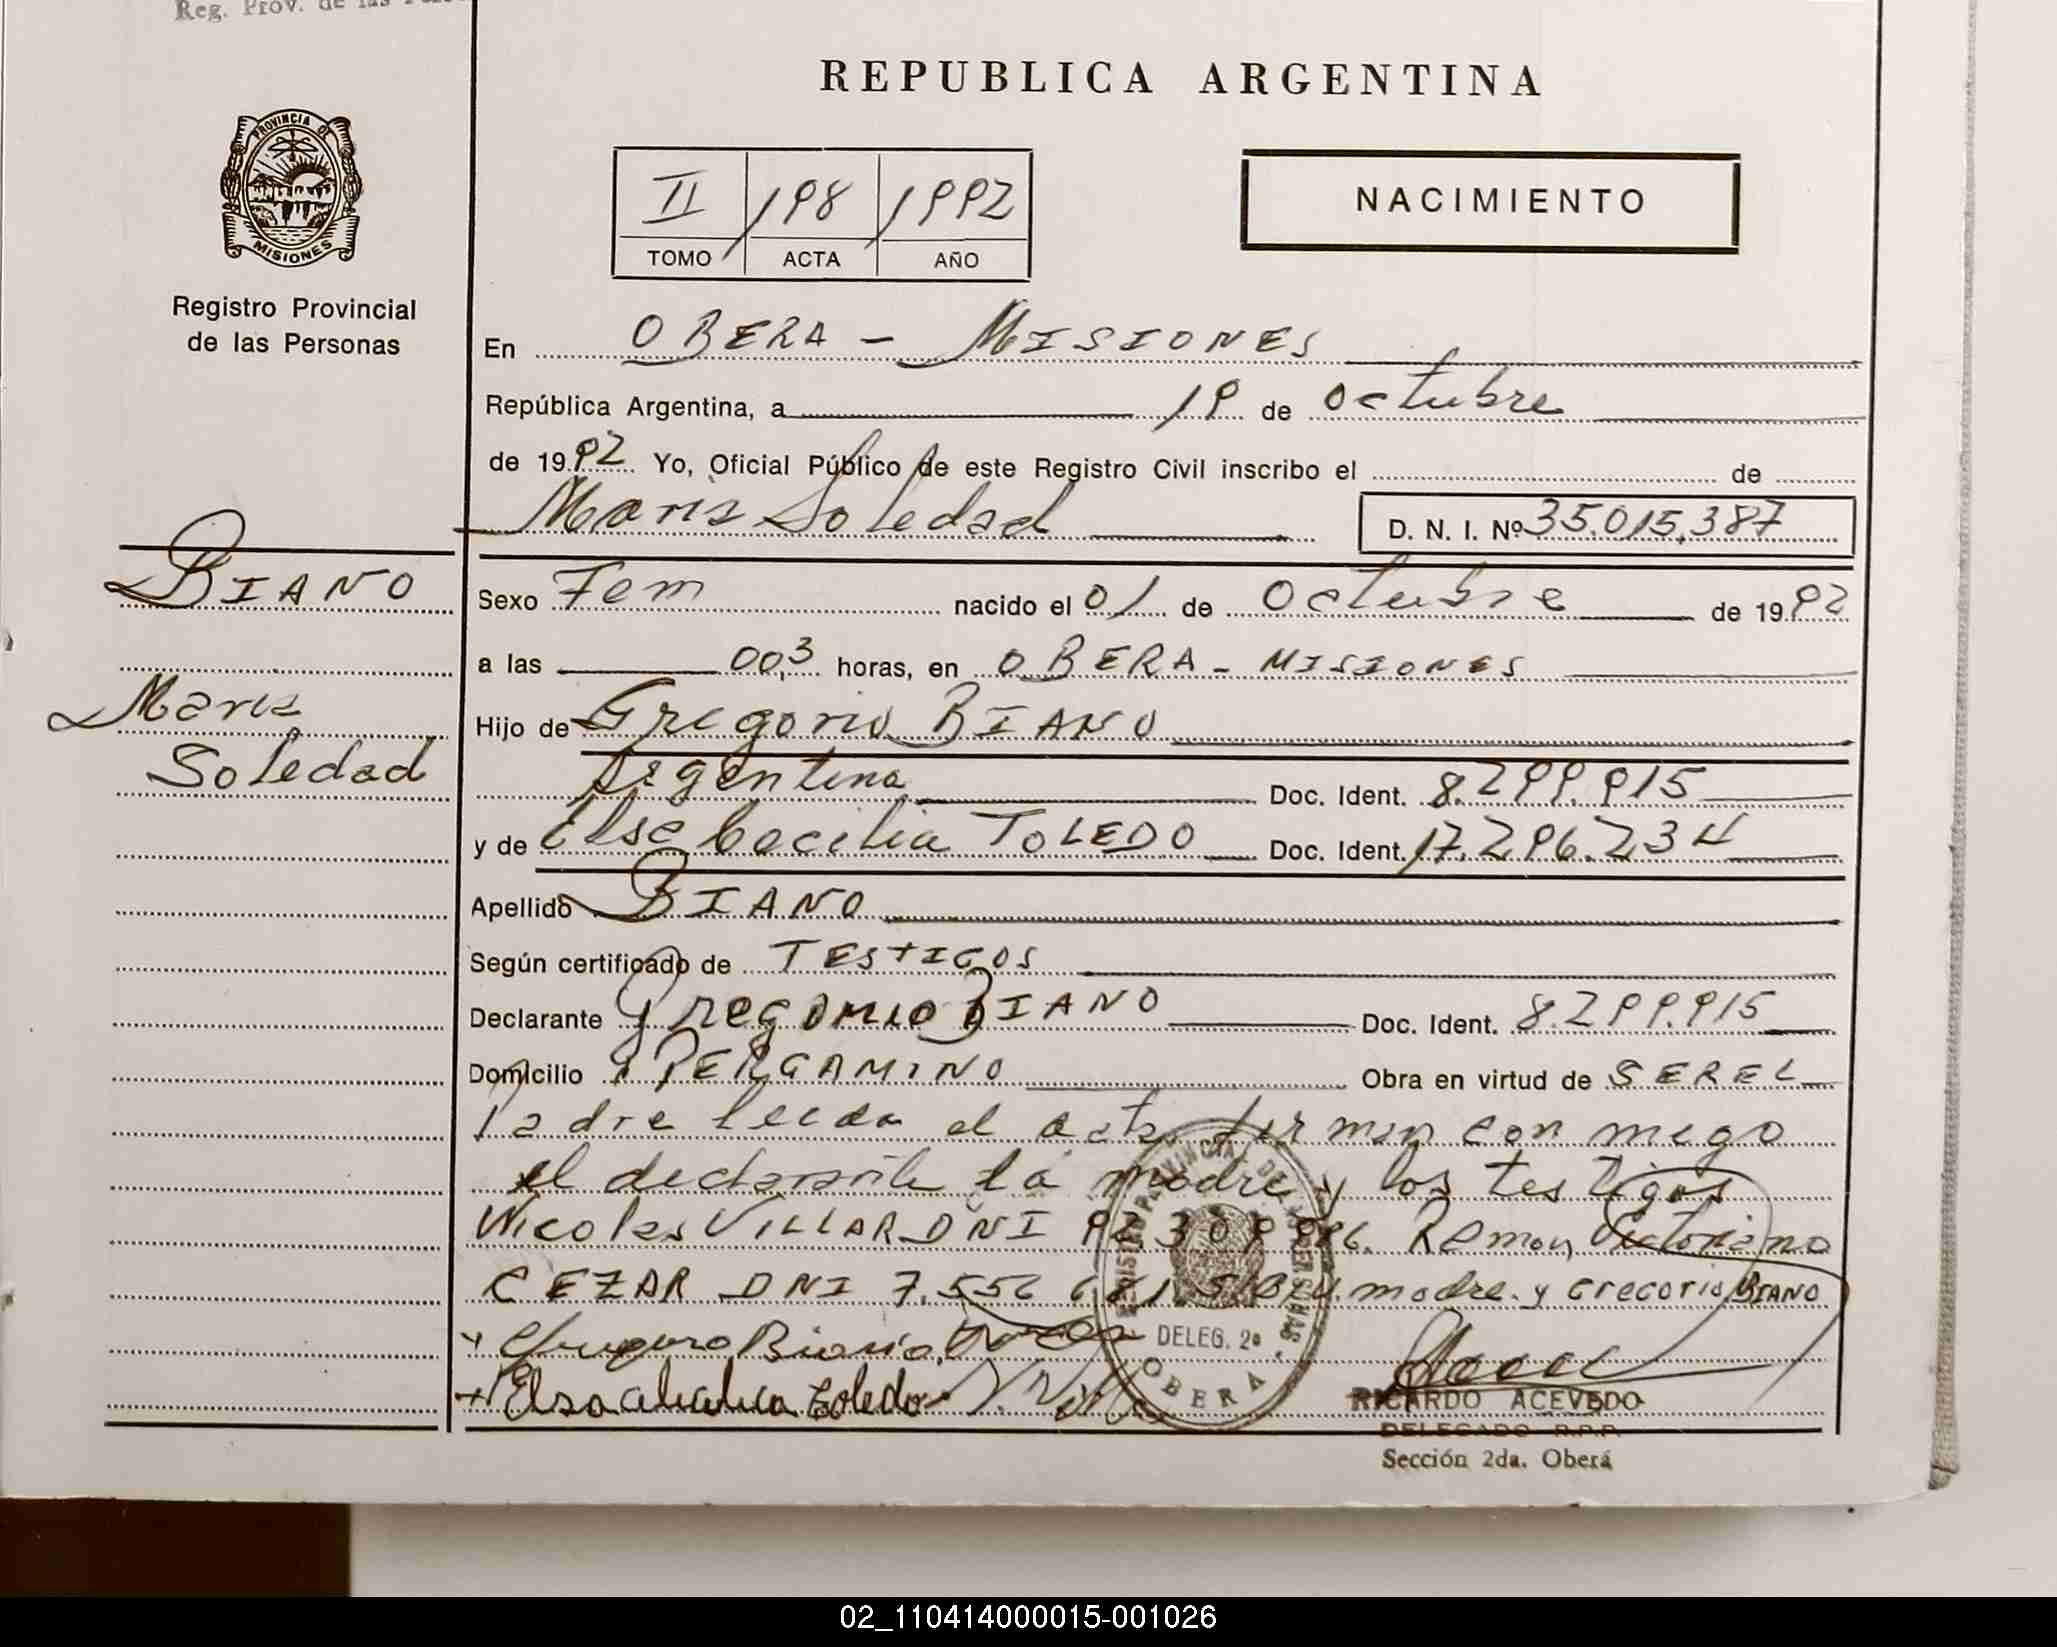 Reg. Prov. de las
REPUBLICA ARGENTINA
PROVINCIA DE
MISIONES
Registro Provincial
de las Personas
II 198 1992
TOMO ACTA AÑO
NACIMIENTO
En OBERA - MISIONES
República Argentina, a 19 de octubre
de 1992 Yo, Oficial Público de este Registro Civil inscribo el de
Maris Soledad D. N. I. Nº 35.015.387
BIANO
Maris
Soledad
Sexo Fem nacido el 01 de octubre de 1992
a las 00,3 horas, en OBERA - MISIONES
Hijo de Gregorio BIANO
Argentina Doc. Ident. 8.299.915
y de Elsa Cecilia TOLEDO Doc. Ident. 17.296.234
Apellido BIANO
Según certificado de TESTIGOS
Declarante Gregorio BIANO Doc. Ident. 8.299.915
Domicilio PERGAMINO Obra en virtud de SER EL
Padre leida el acta firman con migo
el declarante la madre y los testigos
Nicolas VILLAR DNI 92.309.986. Ramon Victoriano
CEZAR DNI 7.556 madre y Gregorio BIANO
Biano
Elsa Toledo
DELEG. 2ª
OBERA
RICARDO ACEVEDO
DELEGADO R.P.P.
Sección 2da. Oberá
02_110414000015-001026